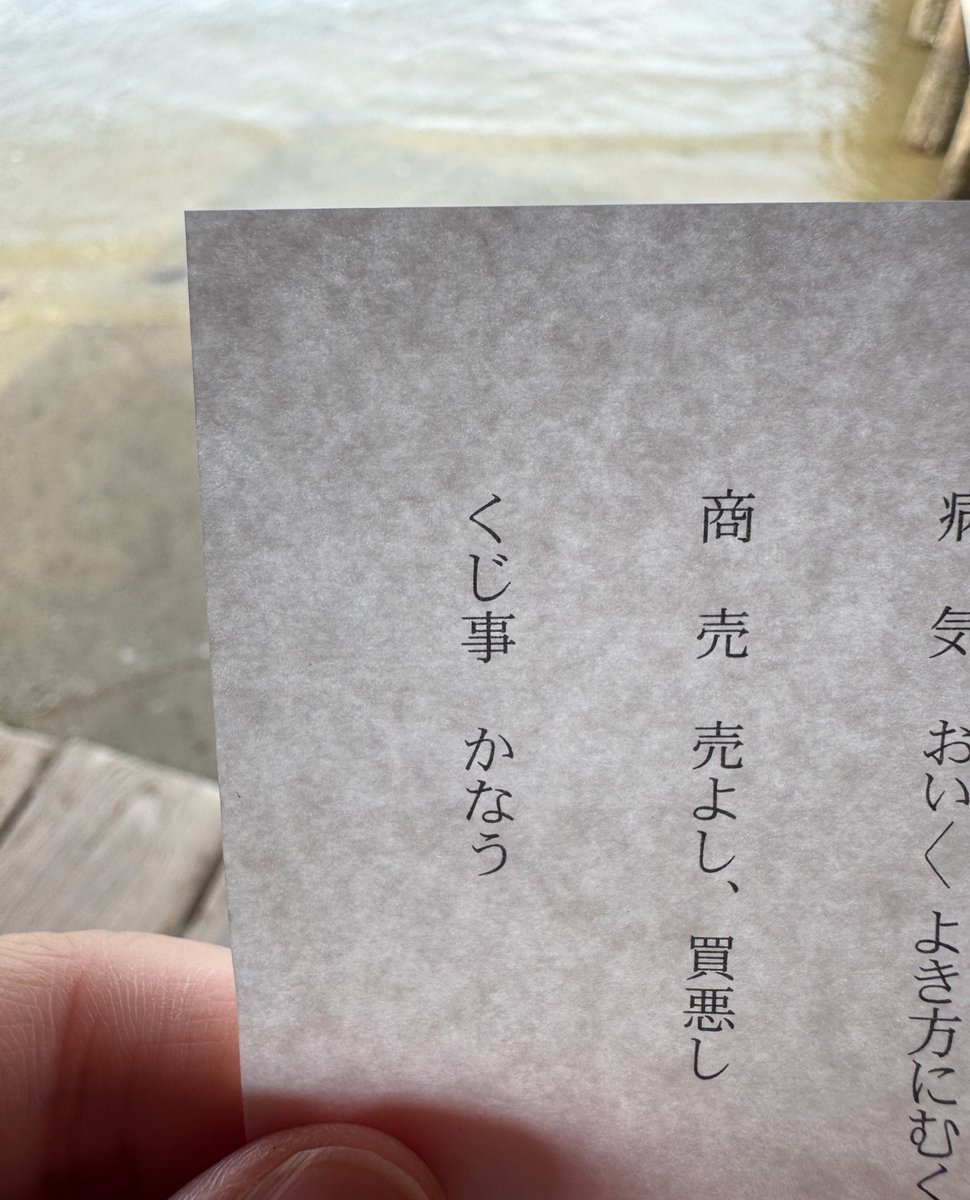 病気　おい〱よき方にむく
商売　売よし、買悪し
くじ事　かなう